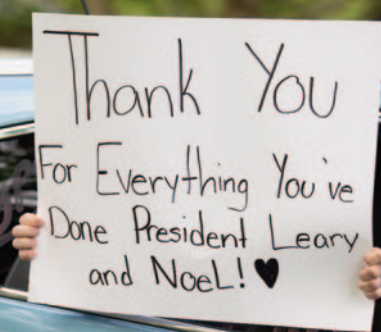 Thank You
For Everything You've
Done President Leary
and NoeL! ♥